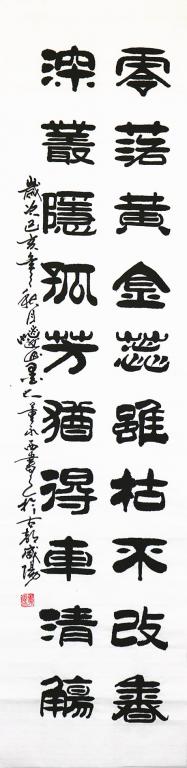 零落黃金蕊雖枯不改香
深叢隱孤芳猶得車清觴
歲次己亥年之秋月山墨人董永西書之於古都咸陽